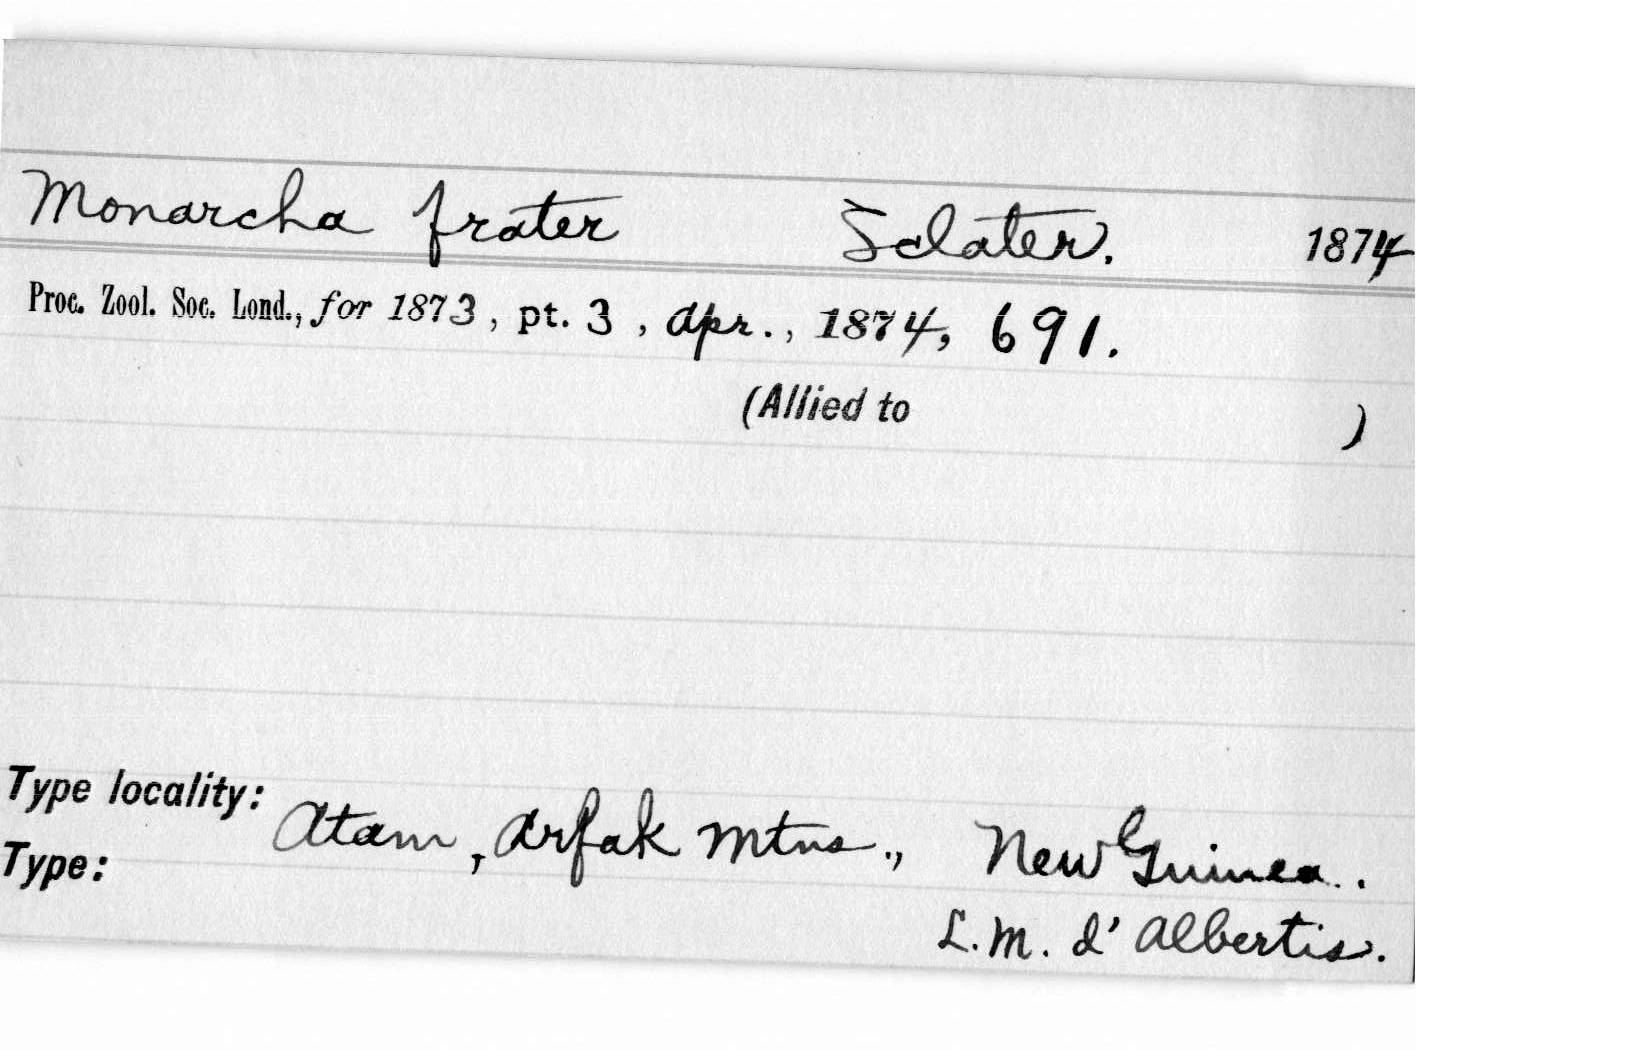 Monarcha frater Sclater. 1874
Proc. Zool. Soc. Lond., for 1873, pt. 3, Apr., 1874, 691.
(Allied to )
Type locality: Atam, Arfak Mtns., New Guinea.
Type:
L. M. d'Albertis.